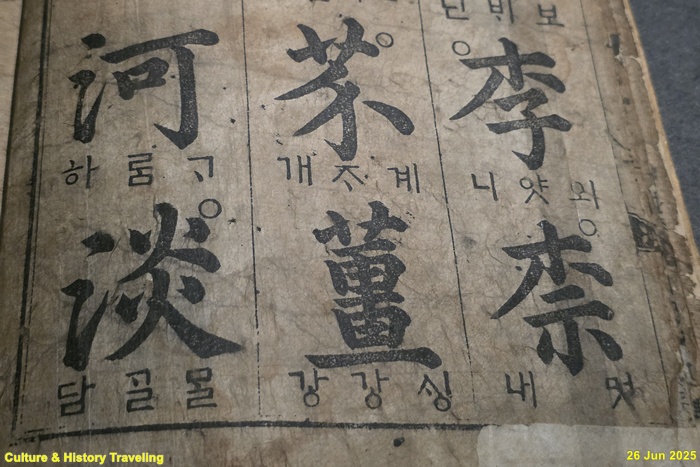 보비딘
李
외얏니
柰
멋내
芥
계ᄌᆞ개
薑
싱강강
河
ᄀᆞ룸하
淡
몰골담
Culture & History Traveling
26 Jun 2025